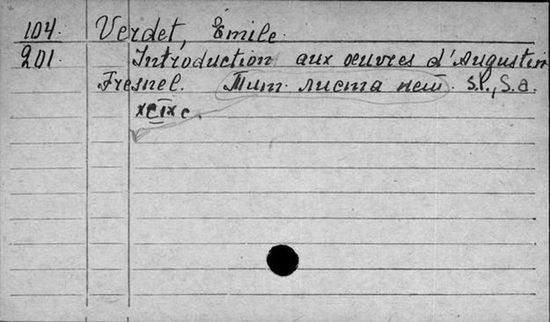 104. Verdet, Émile.
201. Introduction aux oeuvres d'Augustin
Fresnel. Тит. листа нет. S.l., S.a.
XCIX c.